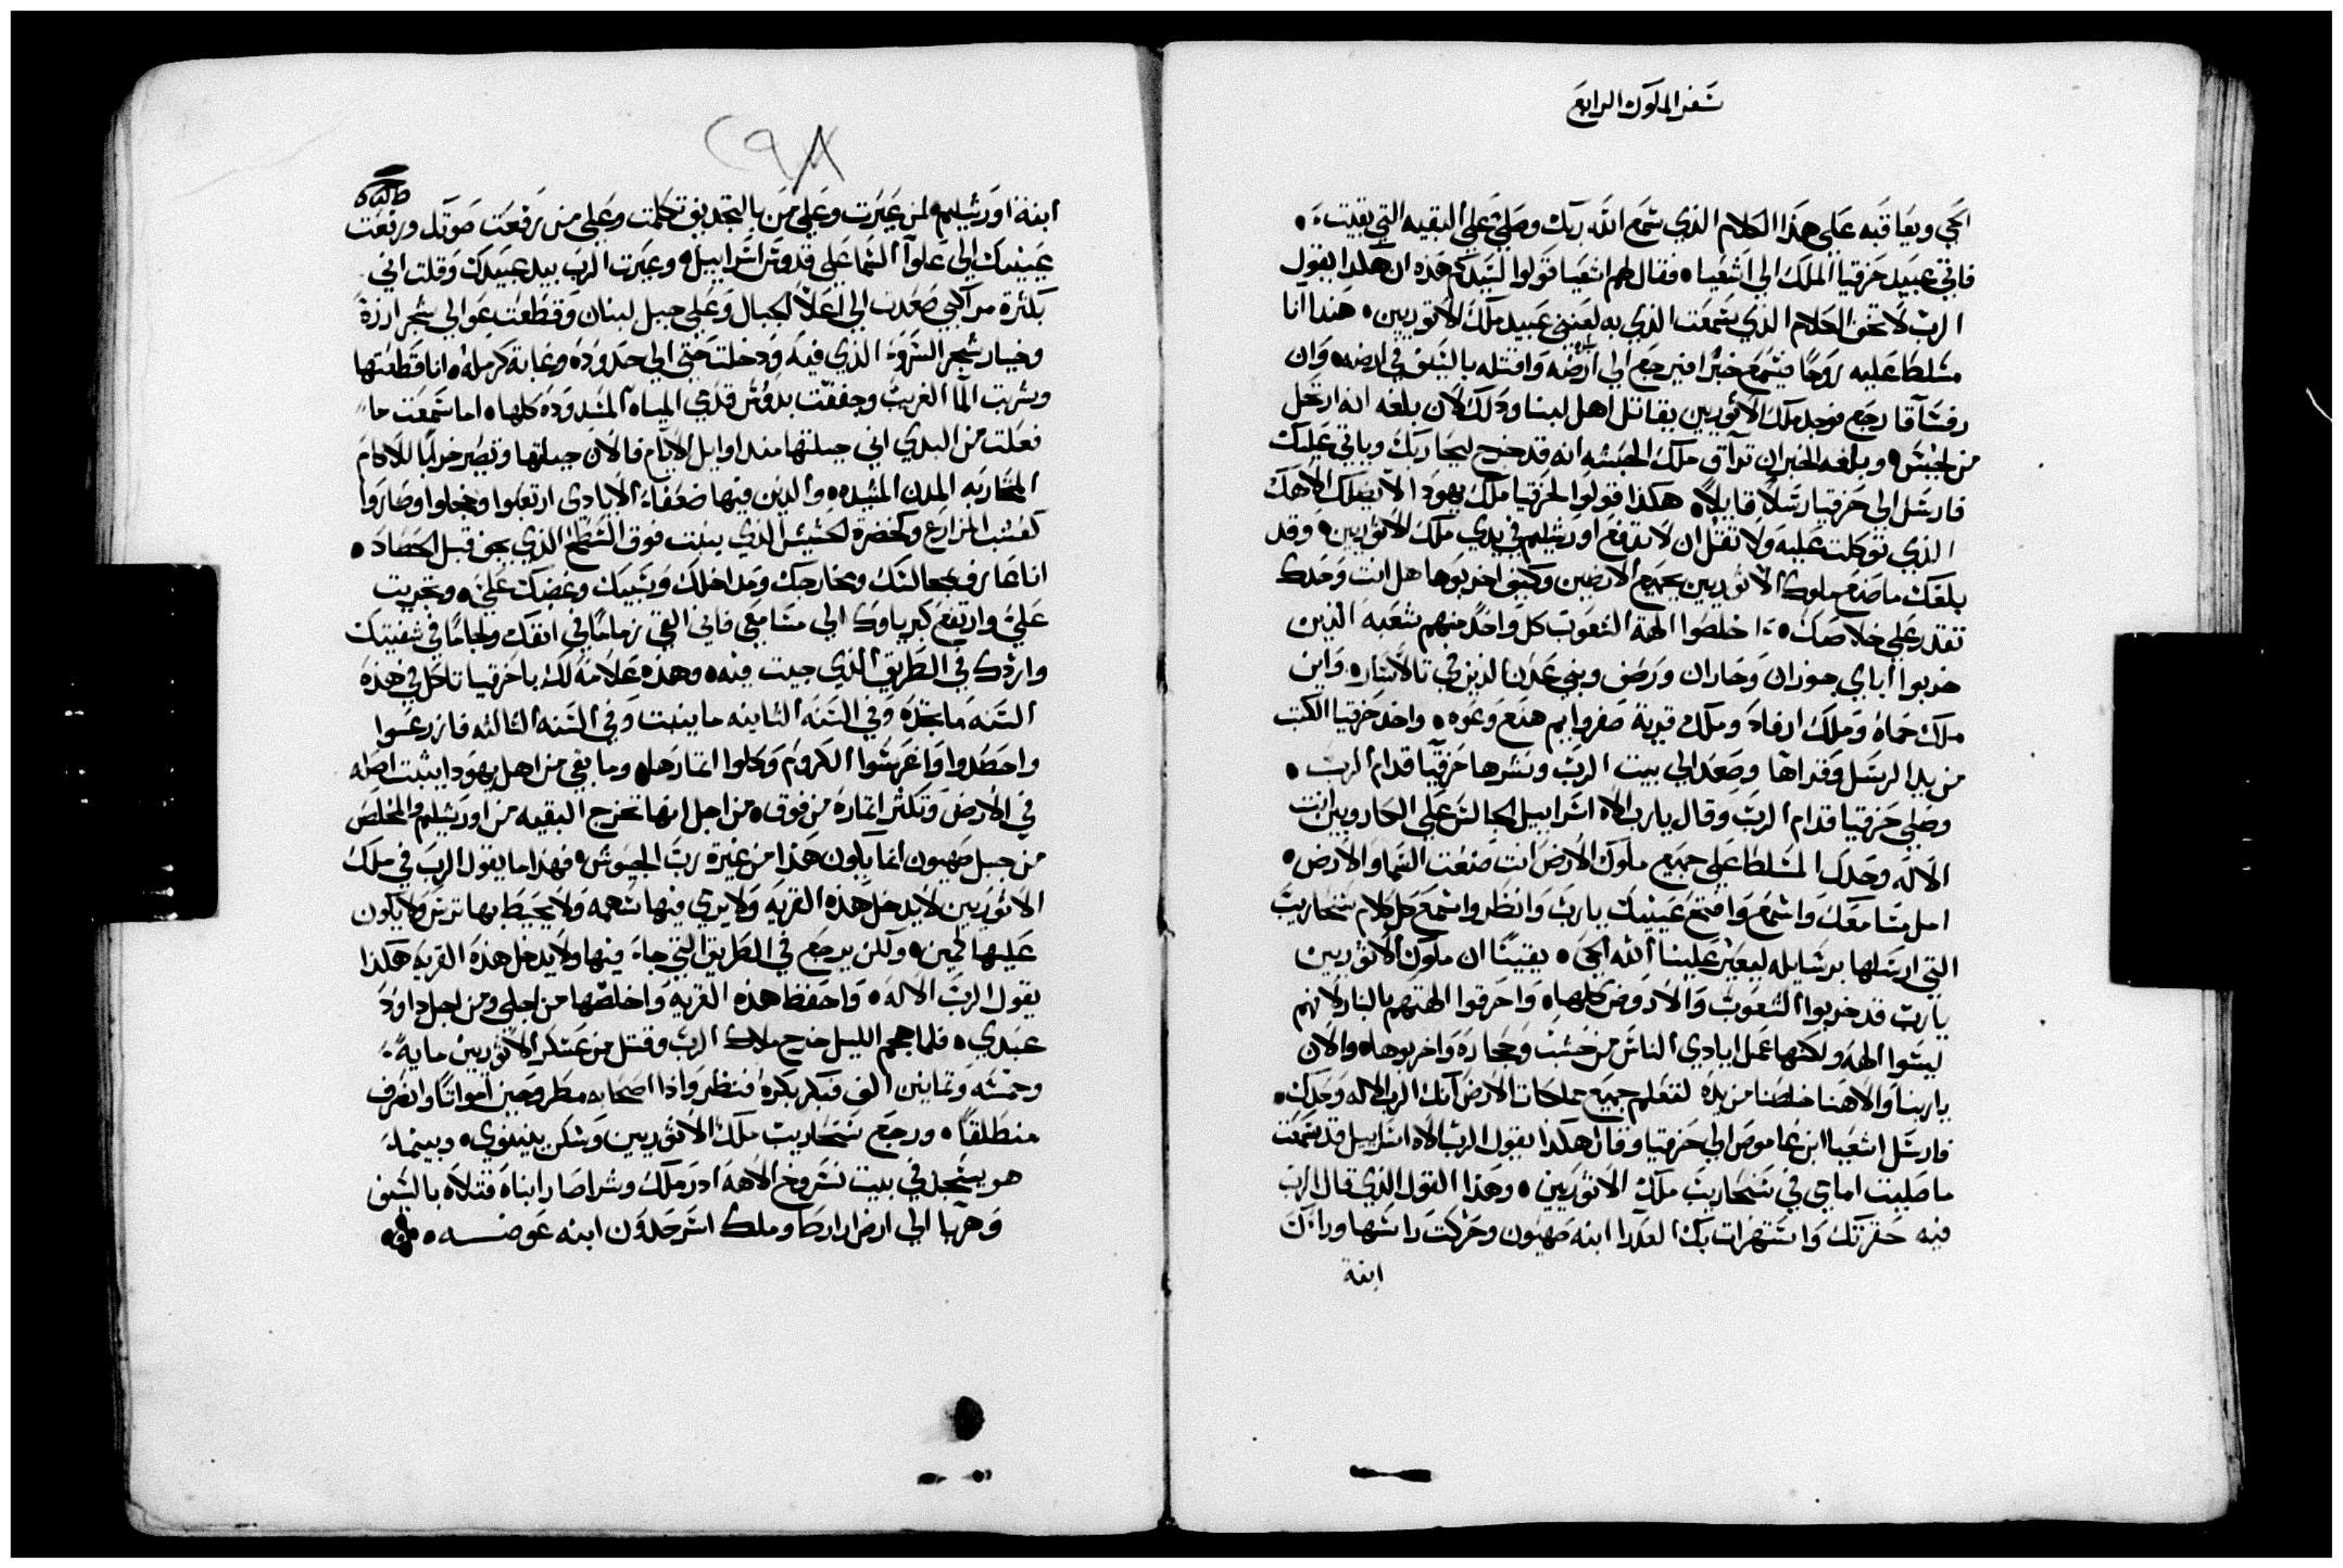 سفر الملوك الرابع
الحي ويعاقبه على هذا الكلام الذي سمع الله ربك وصلي على البقيه التي بقيت
فاتي عبيد حزقيا الملك الي اشعيا فقال لهم اشعيا قولوا لسيدكم هذه ان هكذا يقول
الرب لا تخف الكلام الذي سمعت الذي به لعنني عبيد ملك الاثوريين هنذا انا
مسلطا عليه روحا فيسمع خبرا فيرجع الي ارضه واقتله بالسيف في ارضه وان
رفشاقا رجع فوجد ملك الاثوريين يقاتل اهل لبنا وذلك لان بلغه انه ارتحل
من لخيش وبلغه الخبر ان تراق ملك الحبشه انه قد خرج ليحاربك وياتي عليك
فارسل الي حزقيا رسلا قايلا هكذا قولوا لحزقيا ملك يهودا لا يضلك الاهك
الذي توكلت عليه ولا تقل ان لا تدفع اورشليم في يدي ملك الاثوريين وقد
بلغك ما صنع ملوك الاثوريين بجميع الارضين وكيف اخربوها هل انت وحدك
تقدر علي خلاصك اخلصوا الهة الشعوب كل واحد منهم شعبه الذين
خربوا اباي جوزان وحاران ورصف وبني عدن الذين في تالاسار واين
ملك حماه وملك ارفاد وملك قرية صفروايم هنع وعوه واخذ حزقيا الكتب
من يد الرسل وقراها وصعد الي بيت الرب ونشرها حزقيا قدام الرب
وصلي حزقيا قدام الرب وقال يارب الاه اسراييل الجالس علي الكاروبين انت
الاله وحدك المسلط علي جميع ملوك الارض انت صنعت السما والارض
امل مسامعك واسمع وافتح عينيك يارب وانظر واسمع كل كلام سنحاريب
التي ارسلها برسايله ليعير علينا الله الحي يقينا ان ملوك الاثوريين
يارب قد خربوا الشعوب والاروض كلها واحرقوا الهتهم بالنار لانهم
ليسوا الهه ولكنها عمل ايادي الناس من خشب وحجاره واخربوها والان
ياربنا والاهنا خلصنا من يده لتعلم جميع مملكات الارض انك الرب الاله وحدك
فارسل اشعيا ابن عاموص الي حزقيا وقال هكذا يقول الرب الاه اسراييل قد سمعت
ما صليت امامي في سنحاريب ملك الاثوريين وهذا القول الذي قال الرب
فيه حقرتك واستهزات بك العذرا ابنه صهيون وحركت راسها وراك
ابنة
٢٩٨
ابنة اورشليم لمن عيرت وعلي من بالتجديف تكلمت وعلي من رفعت صوتك ورفعت
عينيك الي علو السما علي قدوس اسراييل وعيرت الرب بيد عبيدك وقلت اني
بكثرة مراكبي صعدت الي اعلا الجبال وعلي جبل لبنان وقطعت عوالي شجر ارزة
وخيار شجر السروه الذي فيه ودخلت حتي الي حدوده وغابة كرمله انا قطعتها
وشربت الما الغريب وجففت بدوس قدمي المياه المسدوده كلها اما سمعت ما
فعلت من البدي اني جبلتها منذ اوايل الايام فالان جبلتها وتصير خرابا للاكام
المحاربه المدن المشيده والذين فيها ضعفاء الايادي ارتعبوا وخجلوا وصاروا
كعشب المزارع وكخضرة الحشيش الذي ينبت فوق السطح الذي يجف قبل الحصاد
انا عارف بمجالسك ومخارجك ومداخلك وسبيك وغضبك علي وتجريت
علي وارتفع كبرياوك الي مسامعي فاني القي زماما في انفك ولجاما في شفتيك
واردك في الطريق الذي جيت فيه وهذه علامة لك ياحزقيا تاكل في هذه
السنه ما تجده وفي السنه الثانيه ما ينبت وفي السنه الثالثه فازرعوا
واحصدوا واغرسوا الكروم وكلوا اثمارها وما بقي من اهل يهودا يثبت اصله
في الارض وتكثر اثماره من فوق من اجل انها تخرج البقيه من اورشليم والمخلص
من جبل صهيون انما يكون هذا من غيرة رب الجيوش فهذا ما يقول الرب في ملك
الاثوريين لا يدخل هذه القريه ولا يرمي فيها سهمه ولا يحيط بها ترس ولا يكون
عليها كمين ولكن يرجع في الطريق التي جاء فيها ولا يدخل هذه القريه هكذا
يقول الرب الاله واحفظ هذه القرية واخلصها من اجلي ومن اجل داوود
عبدي فلما هجم الليل خرج ملاك الرب وقتل من عسكر الاثوريين مايه
وخمسه وثمانين الف فبكر بكره فنظر واذا اصحابه مطروحين امواتا وانصرف
منطلقا ورجع سنحاريب ملك الاثوريين وسكن بنينوي وبينما
هو يسجد في بيت نسروخ الاهه ادرملك وشراصار ابناه قتلاه بالسيف
وهربا الي ارض اراراط وملك اسرحدون ابنه عوضه